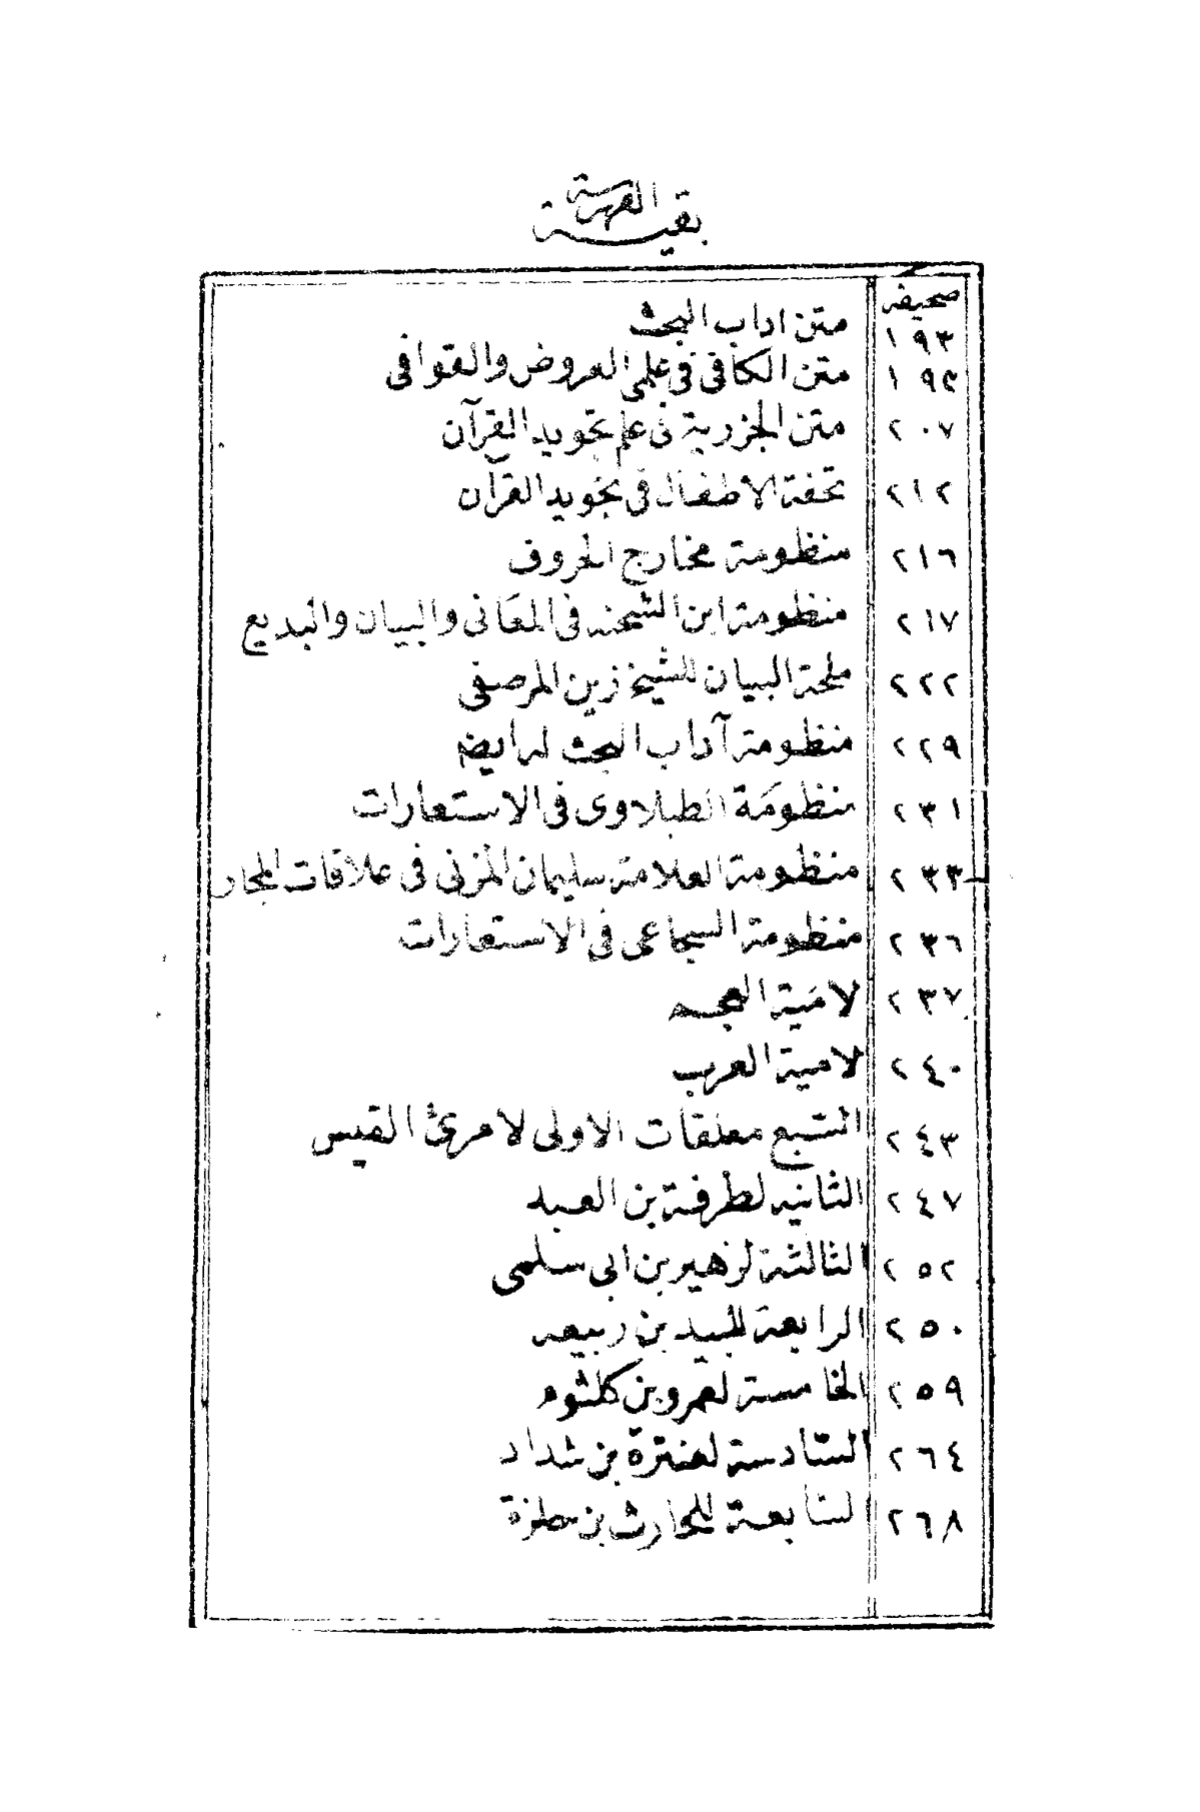 بقية الفهرسة
صحيفه
١٩٣ متن اداب البحث
١٩٤ متن الكافى فى علمى العروض والقوافى
٢٠٧ متن الجزرية فى علم تجويد القرآن
٢١٢ تحفة الاطفال فى تجويد القرآن
٢١٦ منظومة مخارج الحروف
٢١٧ منظومة ابن الشحنه فى المعانى والبيان والبديع
٢٢٢ ملحة البيان للشيخ زين المرصفى
٢٢٩ منظومة آداب البحث له ايضا
٢٣١ منظومة الطبلاوى فى الاستعارات
٢٣٣ منظومة العلامة سليمان المزنى فى علاقات المجاز
٢٣٦ منظومة السجاعى فى الاستعارات
٢٣٧ لامية العجم
٢٤٠ لامية العرب
٢٤٣ السبع معلقات الاولى لامرئ القيس
٢٤٧ الثانيه لطرفة بن العبد
٢٥٢ الثالثة لزهير بن ابى سلمى
٢٥٠ الرابعة للبيد بن ربيعه
٢٥٩ الخامسة لعمرو بن كلثوم
٢٦٤ السادسة لعنترة بن شداد
٢٦٨ السابعة للحارث بن حلزة